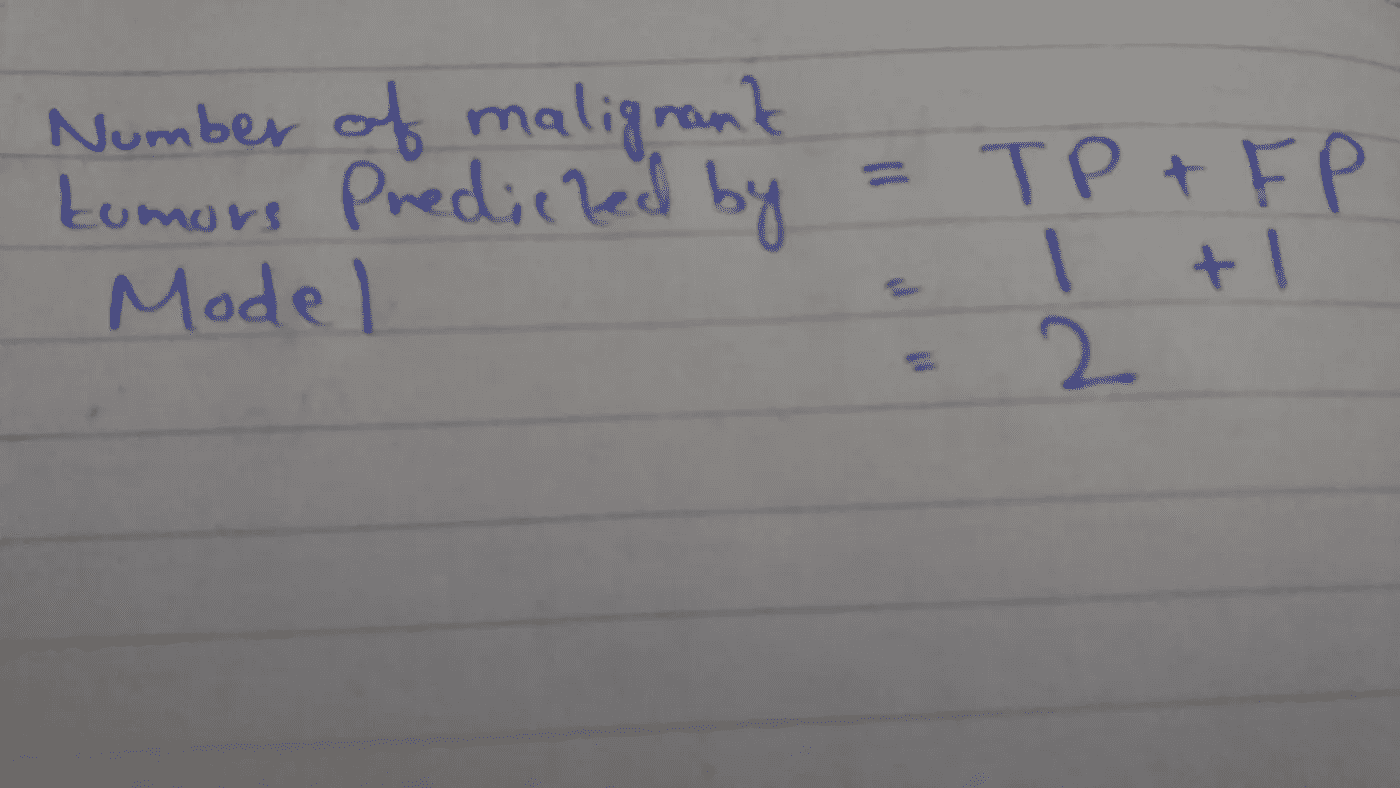 Number of malignant
tumors Predicted by = TP + FP
Model = 1 + 1
= 2